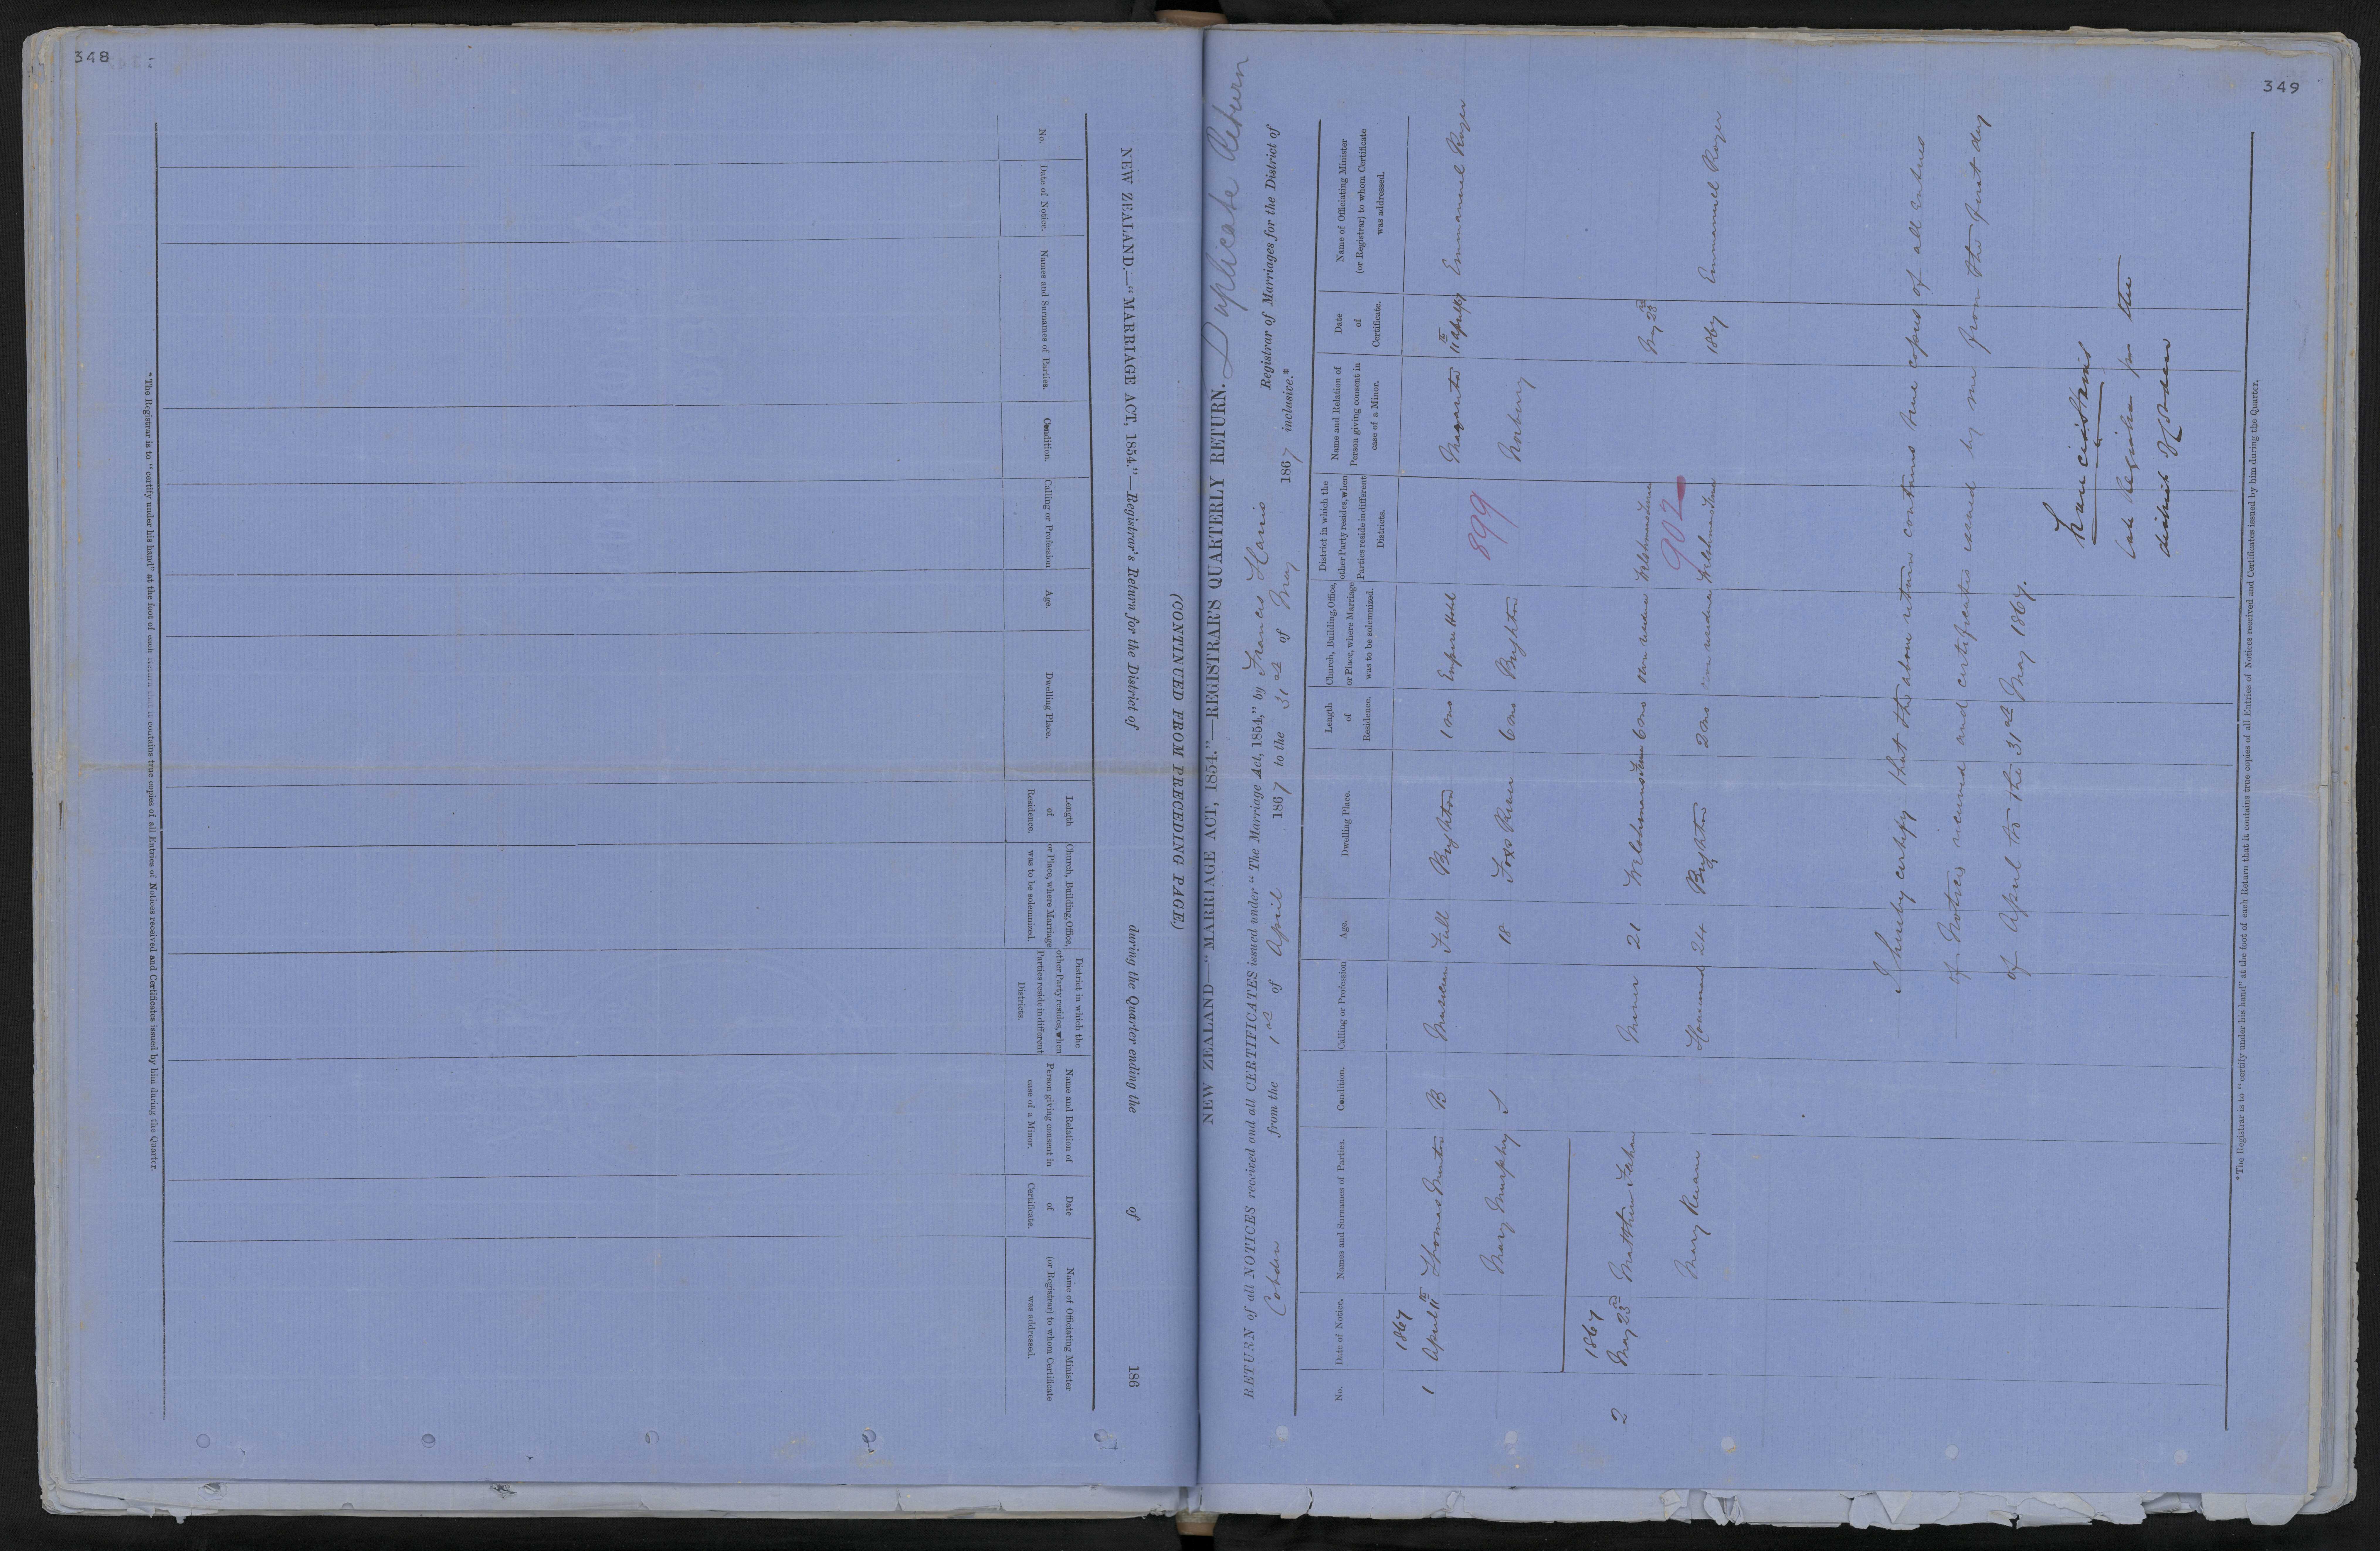 348
NEW ZEALAND.—"MARRIAGE ACT, 1854."—Registrar's Return for the District of during the Quarter ending the of 186
(CONTINUED FROM PRECEDING PAGE.)
No.
Date of Notice.
Names and Surnames of Parties.
Condition.
Calling or Profession
Age.
Dwelling Place.
Length
of
Residence.
Church, Building, Office,
or Place, where Marriage
was to be solemnized.
District in which the
other Party resides, when
Parties reside in different
Districts.
Name and Relation of
Person giving consent in
case of a Minor.
Date
of
Certificate.
Name of Officiating Minister
(or Registrar) to whom Certificate
was addressed.
*The Registrar is to "certify under his hand" at the foot of each Return that it contains true copies of all Entries of Notices received and Certificates issued by him during the Quarter.
349
NEW ZEALAND—"MARRIAGE ACT, 1854."—REGISTRAR'S QUARTERLY RETURN. Duplicate Return
RETURN of all NOTICES received and all CERTIFICATES issued under "The Marriage Act, 1854," by Francis Harris Registrar of Marriages for the District of
Cobden from the 1st of April 1867 to the 31st of May 1867 inclusive.*
No.
Date of Notice.
Names and Surnames of Parties.
Condition.
Calling or Profession
Age.
Dwelling Place.
Length
of
Residence.
Church, Building, Office,
or Place, where Marriage
was to be solemnized.
District in which the
other Party resides, when
Parties reside in different
Districts.
Name and Relation of
Person giving consent in
case of a Minor.
Date
of
Certificate.
Name of Officiating Minister
(or Registrar) to whom Certificate
was addressed.
1867
1 April 11th Thomas B Musician Full Brighton 1 mo Empire Hotel Margaret 11th April/67 Emmanuel Royer
Mary Murphy S 18 Fox's River 6 mo Brighton 899 Norbury
1867
2 May 23rd Matthew Miner 21 Welshmans Terrace 6 mo own residence Welshmans Terrace May 23rd
Mary Keane Housemaid 24 Brighton 2 mo own residence Welshmans Terrace 902 1867 Emmanuel Royer
I hereby certify that the above return contains true copies of all entries
of Notices received and certificates issued by me from the first day
of April to the 31st May 1867.
Francis Harris
late Registrar for the
district of Cobden
*The Registrar is to "certify under his hand" at the foot of each Return that it contains true copies of all Entries of Notices received and Certificates issued by him during the Quarter.